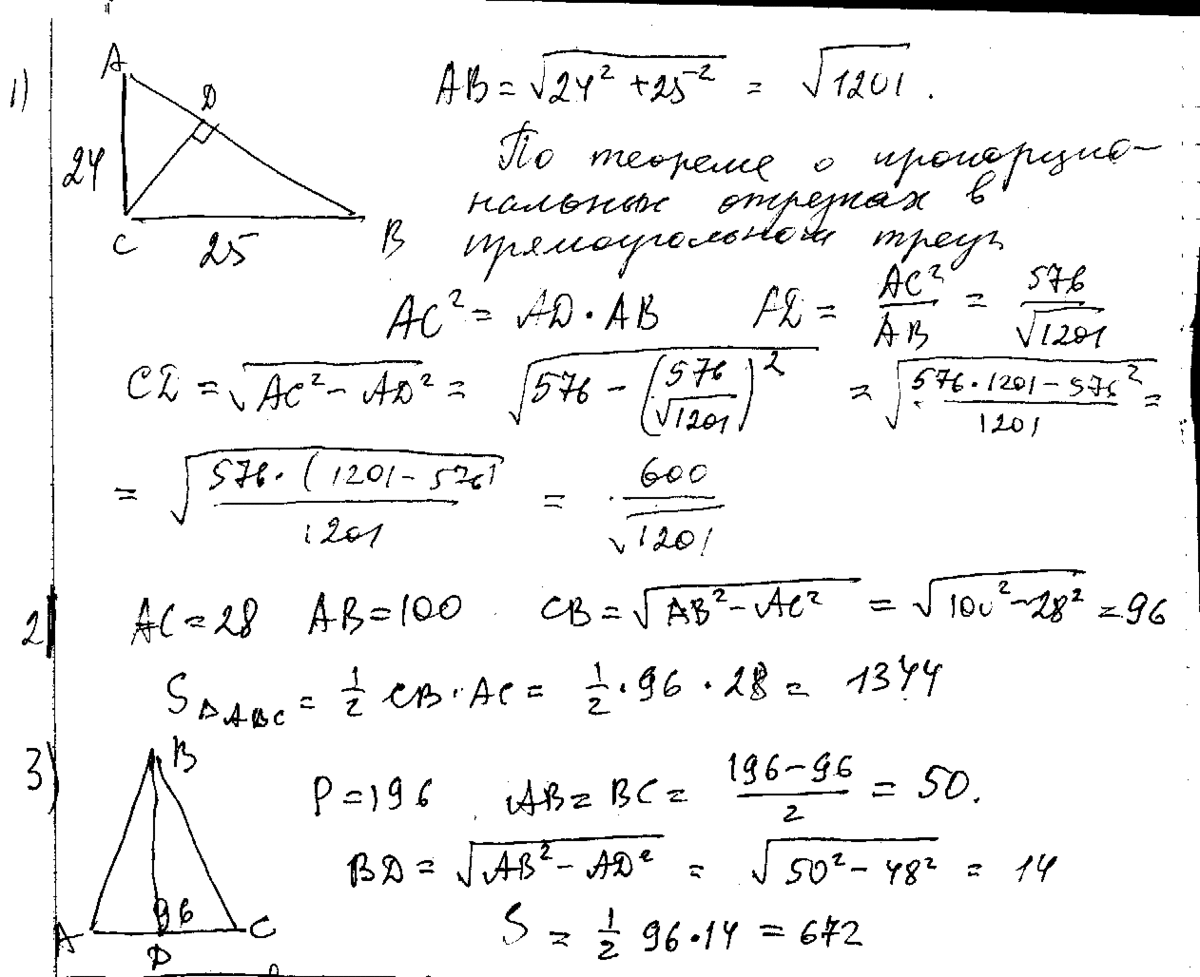 1)
A
D
24
C
25
B
AB = √(24² + 25²) = √1201.
По теореме о пропорцио-
нальных отрезках в
прямоугольном треуг.
AC² = AD · AB AD = AC²/AB = 576/√1201
CD = √(AC² − AD²) = √(576 − (576/√1201)²) = √((576·1201 − 576²)/1201) =
= √(576·(1201 − 576)/1201) = 600/√1201
2) AC = 28 AB = 100 CB = √(AB² − AC²) = √(100² − 28²) = 96
S△ABC = 1/2 CB · AC = 1/2 · 96 · 28 = 1344
3)
B
A
96
D
C
P = 196 AB = BC = (196 − 96)/2 = 50.
BD = √(AB² − AD²) = √(50² − 48²) = 14
S = 1/2 96 · 14 = 672